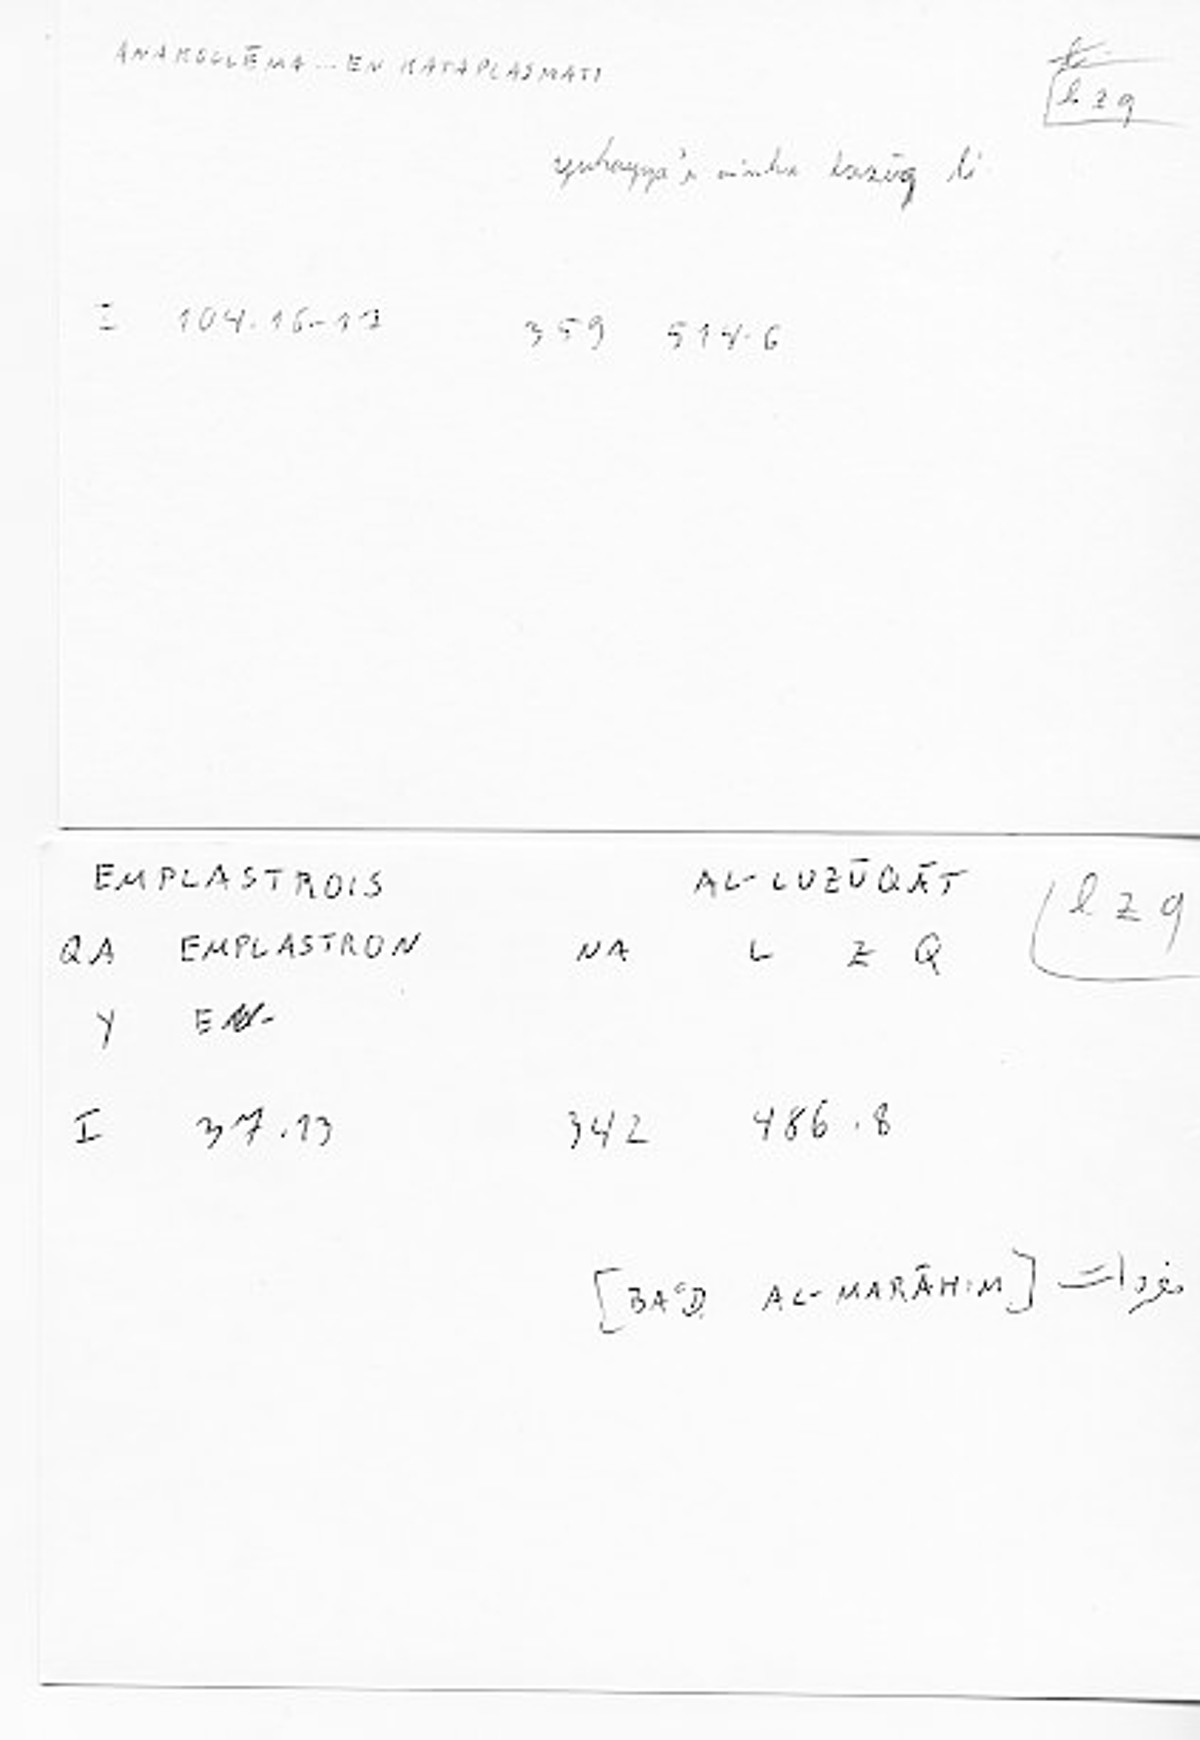 ANAKOLLĒMA ... EN KATAPLASMATI
lzq
yuhayya'u minha lazūq li
I 104.16-17 359 514.6
EMPLASTROIS AL-LUZŪQĀT lzq
QA EMPLASTRON NA L Z Q
Y EN-
I 37.13 342 486.8
[BAʿḌ AL-MARĀHIM]